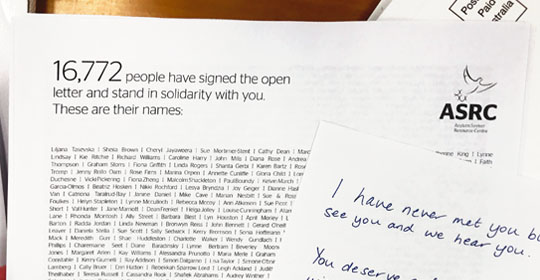 Pos
Paid
stralia
16,772 people have signed the open
letter and stand in solidarity with you.
These are their names:
ASRC
Asylum Seeker
Resource Centre
Liljana Tasevska | Sheila Brown | Cheryl Jayaweera | Sue Mortimer-Steet | Cathy Dean | Marc
King | Lynne
Lindsay | Kae Ritchie | Richard Williams | Caroline Harry | John Mills | Diana Rose | Andrea
| Faith
Thompson | Graham Storrs | Fiona Griffith | Linda Rogers | Shanta Gerbi | Karen Bartz | Rose
Tromp | Jenny Rollo Owen | Rose Firm | Marina Orpen | Annette Cunliffe | Gloria Child | Lore
Duchesne | Vicki Pickering | Fiona Zheng | Malcolm Shackleton | Paul Boundy | Kevin March
Garcia-Olmos | Beatriz Hosken | Nikki Rochford | Lesya Bryndzia | Joy Geiger | Dionne
Van | Catriona | Janine Daniel | Mike Cave | Marian Nesbit | Sue &
Foulkes | Helyn Stapleton | Lynne Mcculloch | Rebecca Mcroy | Ann Atkinson | Sue Pinet
Short | Val Hunter | Jane Marriott | Deann Frenkel | Helga Jolley | Louise Cunningham | Alan
Lane | Rhonda Mcintosh | Ally Street | Barbara Blest | Lyn Hoadon | April Morley | L
Barton | Radda Jordan | Linda Newman | Bronwyn Reiss | John Bennett | Gerard Cheall
Leaver | Daniela Stella | Sue Scott | Sally Sedwick | Kerry Brennan | Sena Hoffmann
Mack | Meredith Gurr | Shae Huddleston | Charlotte Walker | Wendy Gundlach |
Phillips | Charmaine Seet | Diane Baracinsky | Lynne Benbam | Beverley Moore
Jones | Margaret Allen | Kay Williams | Alessandra Prunotto | Maria Merle | Graham
Constable | Kerry Gunnell | Kay Addison | Simon Dalgarno | Lisa Taylor | Simone
Lamberg | Cally Bruer | Dan Hadon | Rebekah Sparrow-Lord | Leigh Ackland | Judith
Theilhaber | Teresa Russell | Cassandra Roux | Shafiek Abrahams | Audrey Winther |
I have never met you bu
see you and we hear you.
You deserve